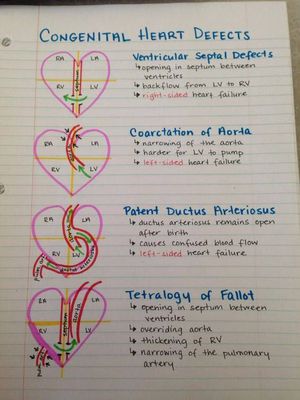 CONGENITAL HEART DEFECTS
Ventricular Septal Defects
↳ opening in septum between
ventricles
↳ backflow from LV to RV
↳ right-sided heart failure
RA LA
septum
RV LV
Coarctation of Aorta
↳ narrowing of the aorta
↳ harder for LV to pump
↳ left-sided heart failure
RA LA
aorta
RV LV
Patent Ductus Arteriosus
↳ ductus arteriosus remains open
after birth
↳ causes confused blood flow
↳ left-sided heart failure
RA LA
aorta
RV LV
Tetralogy of Fallot
↳ opening in septum between
ventricles
↳ overriding aorta
↳ thickening of RV
↳ narrowing of the pulmonary
artery
RA LA
septum
aorta
RV LV